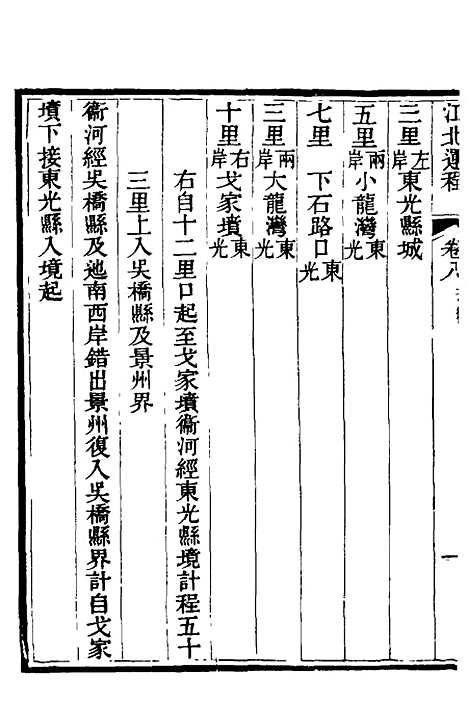 江北運程 卷八
三里左岸東光縣城
五里兩岸小龍灣東光
七里 下石路口東光
三里兩岸大龍灣東光
十里右岸戈家墳東光
右自十二里口起至戈家墳衞河經東光縣境計程五十
三里上入吳橋縣及景州界
衞河經吳橋縣及迆南西岸錯出景州復入吳橋縣界計自戈家
墳下接東光縣入境起